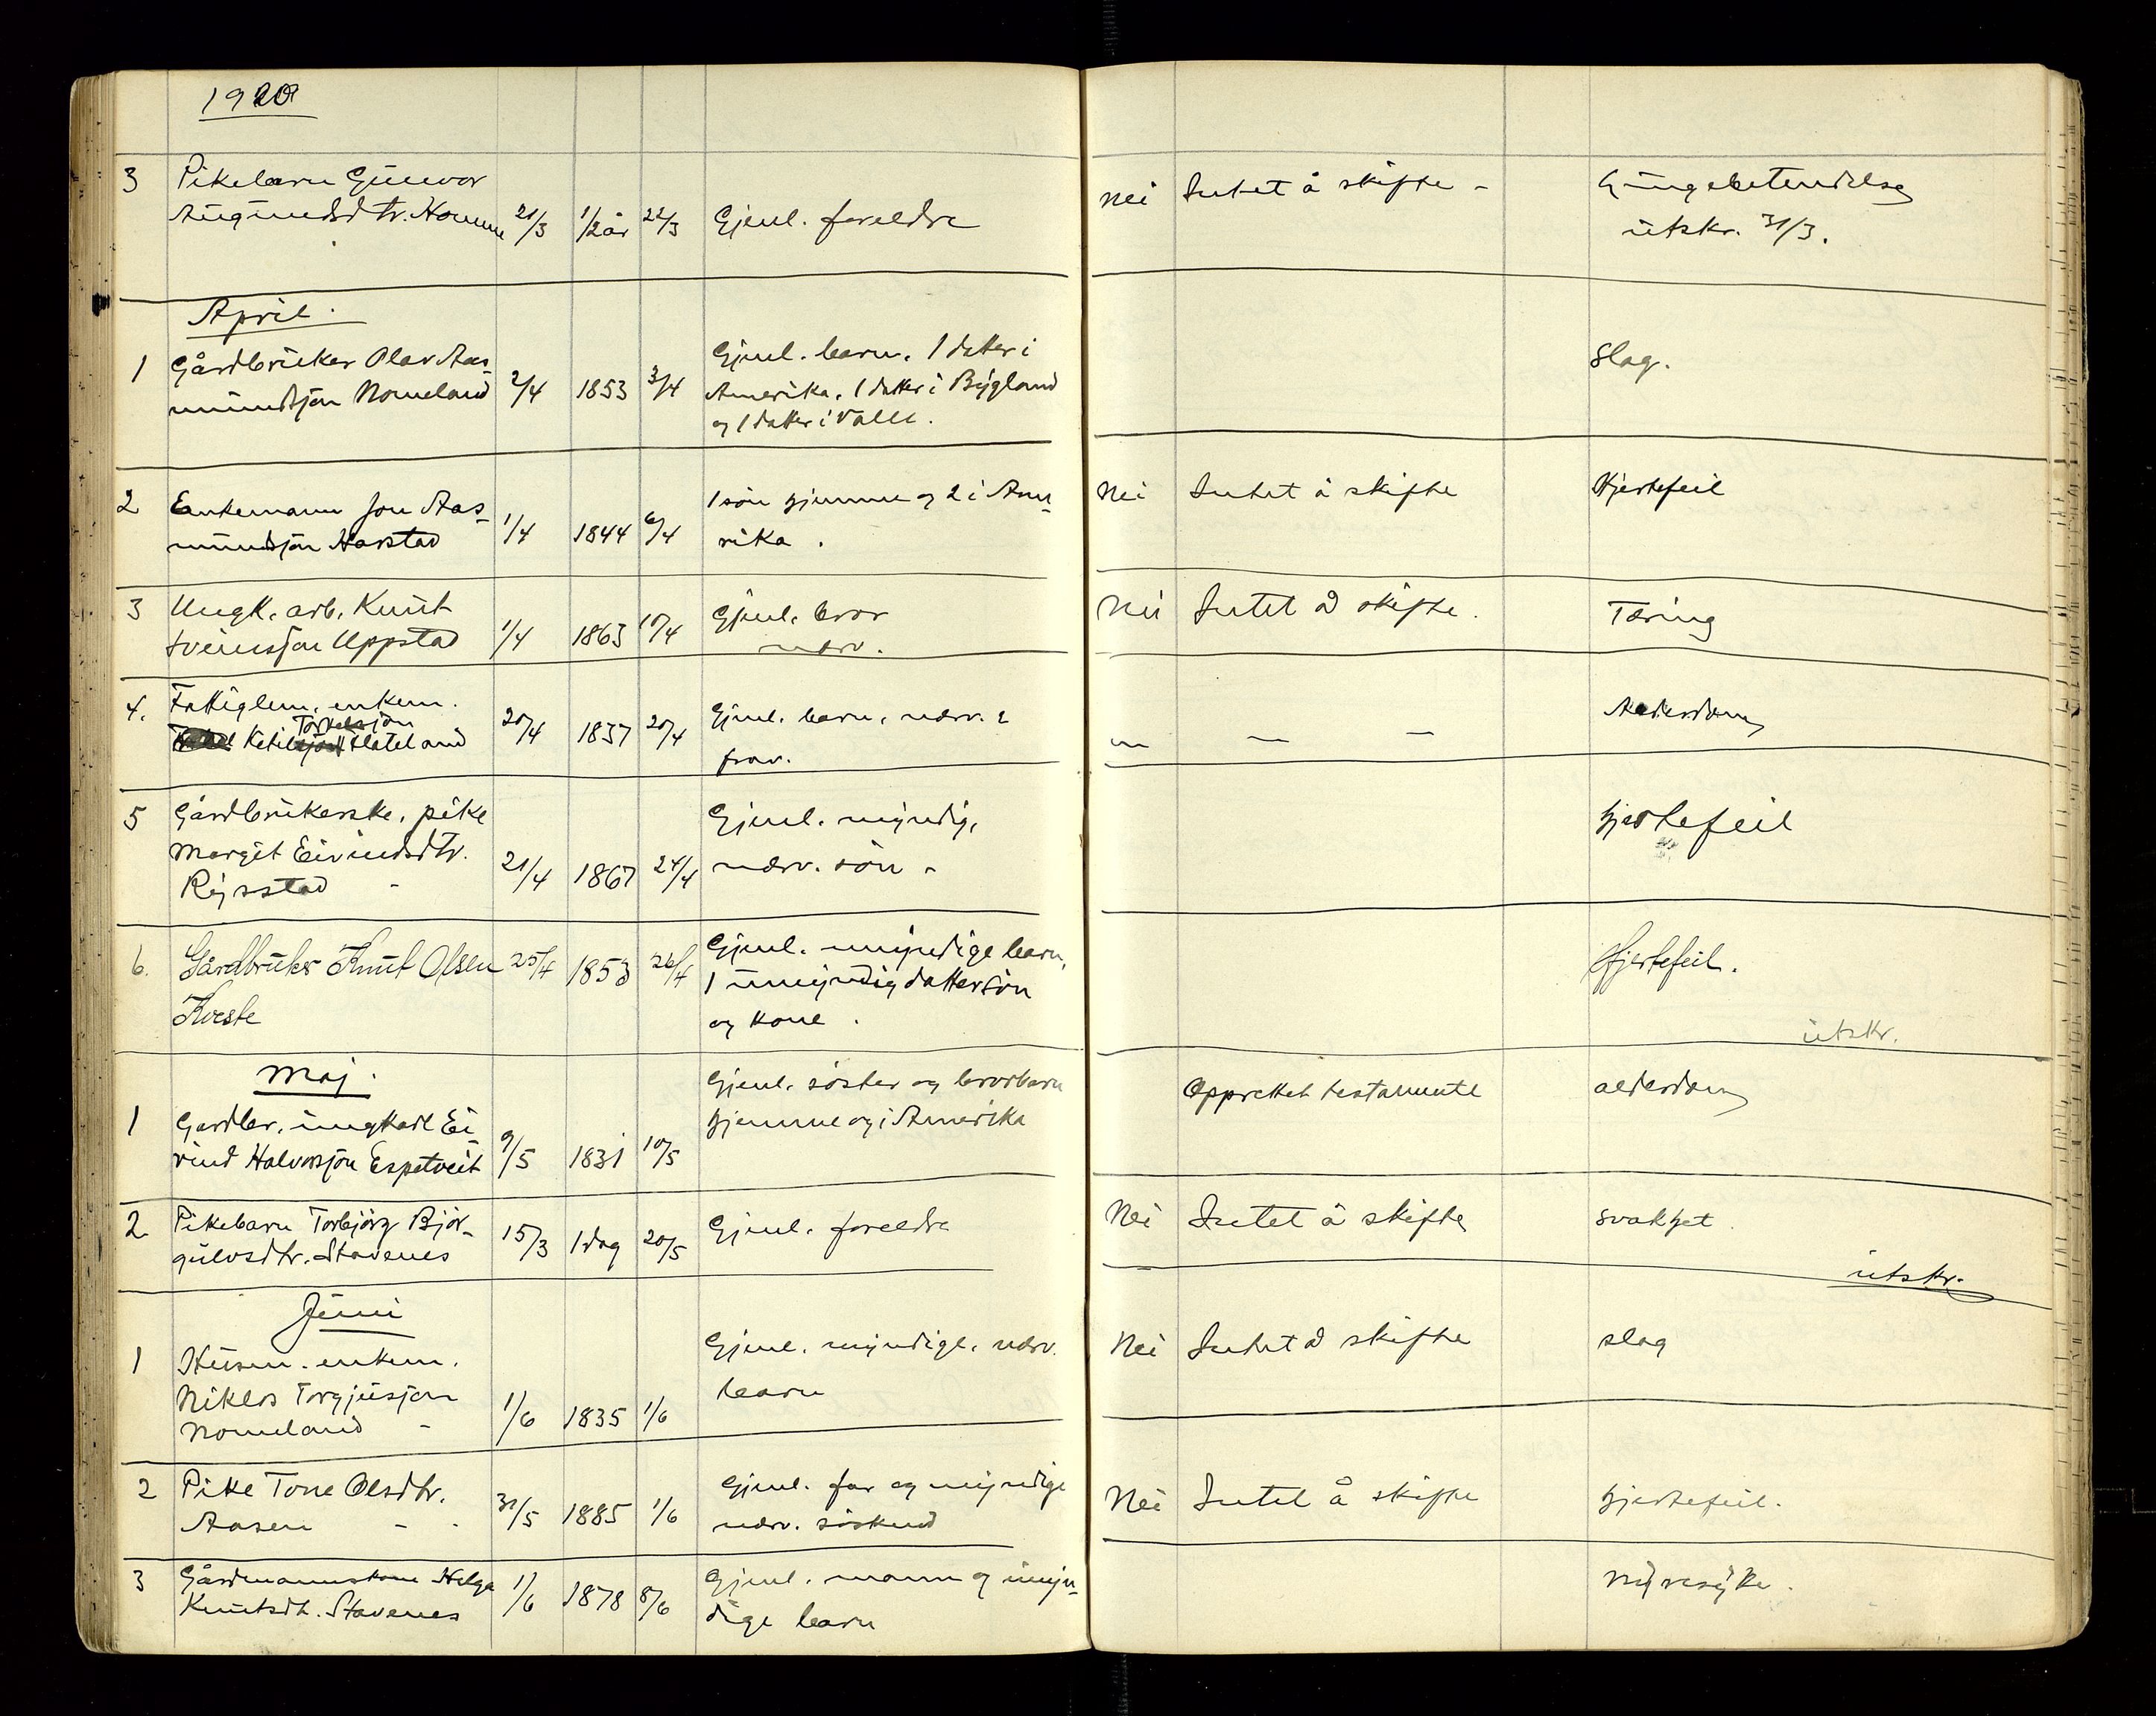 1920
3 Pikebarn Gunvor
Augundsdtr. Homme 21/3 1/2 år 22/3 Gjenl. foreldre Nei Intet å skifte - Lungebetendelse
utskr. 31/3.
April.
1 Gårdbruker Olav Aas-
mundsjon Nomeland 2/4 1853 3/4 Gjenl. barn. 1 datter i
Amerika, 1 datter i Bygland
og 1 datter i Valle. Slag.
2 Enkemann Jon Aas-
mundsjon Harstad 1/4 1844 6/4 1 sön hjemme og 2 i Ame-
rika. Nei Intet å skifte Hjertefeil
3 Ungk. arb. Knut
Sveinsson Uppstad 1/4 1863 10/4 Gjenl. bror
nærv. Nei Intet å skifte. Tæring
4. Fattiglem, enkem.
Ketil Torkelsjon Flateland 20/4 1837 20/4 Gjenl. barn, nærv. &
frav. — — — Alderdom
5 Gårdbrukerske, pike
Margit Eivindsdtr.
Rysstad - 21/4 1867 24/4 Gjenl. myndig,
nærv. sön - hjertefeil
6. Gårdbruker Knut Olsen
Kveste 25/4 1853 26/4 Gjenl. myndige barn,
1 umyndig dattersön
og kone. Hjertefeil.
utskr.
Maj.
1 Gardbr. ungkarl Ei-
vind Halvorsjon Espetveit 9/5 1831 10/5 Gjenl. söster og brorbarn
hjemme og i Amerika Opprettet testamente alderdom
2 Pikebarn Torbjörg Björ-
gulvsdtr. Stavenes 15/3 1 dag 20/5 Gjenl. foreldre Nei Intet å skifte svakhet.
utskr.
Juni
1 Husm. enkem.
Niklos Torgjusjon
Nomeland - 1/6 1835 1/6 Gjenl. myndige, nærv.
barn Nei Intet å skifte slag
2 Pike Tone Olsdtr.
Aasen - - 31/5 1885 1/6 Gjenl. far og myndige
nærv. söskend Nei Intet å skifte hjertefeil.
3 Gårdmannskone Helga
Knutsdt. Stavenes 1/6 1878 8/6 Gjenl. mann og umyn-
dige barn nyresyke.